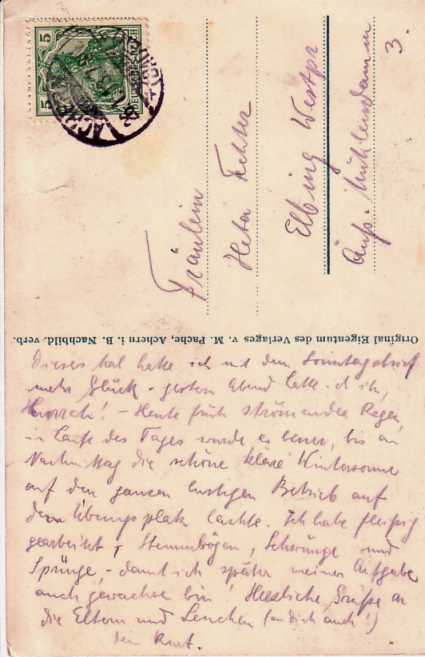 5 5
DEUTSCHES REICH
ACHERN
Fräulein
Heta Fechter
Elbing Westpr
Äuß. Mühlendamm
3.
Original Eigentum des Verlages v. M. Pache, Achern i. B. Nachbild. verb.
Dieses Mal hatte ich mit dem Sonntagsbrief
mehr Glück - gestern Abend hatte ich ihn,
Hurrah! - Heute früh strömender Regen,
im Laufe des Tages wurde es besser, bis am
Nachmittag die schöne klare Wintersonne
auf den ganzen lustigen Betrieb auf
dem Übungsplatz lachte. Ich habe fleißig
gearbeitet, Stemmbögen, Schwünge und
Sprünge, - damit ich später meiner Aufgabe
auch gewachsen bin! Herzliche Grüße an
die Eltern und Lenchen (an dich auch!)
dein Kurt.